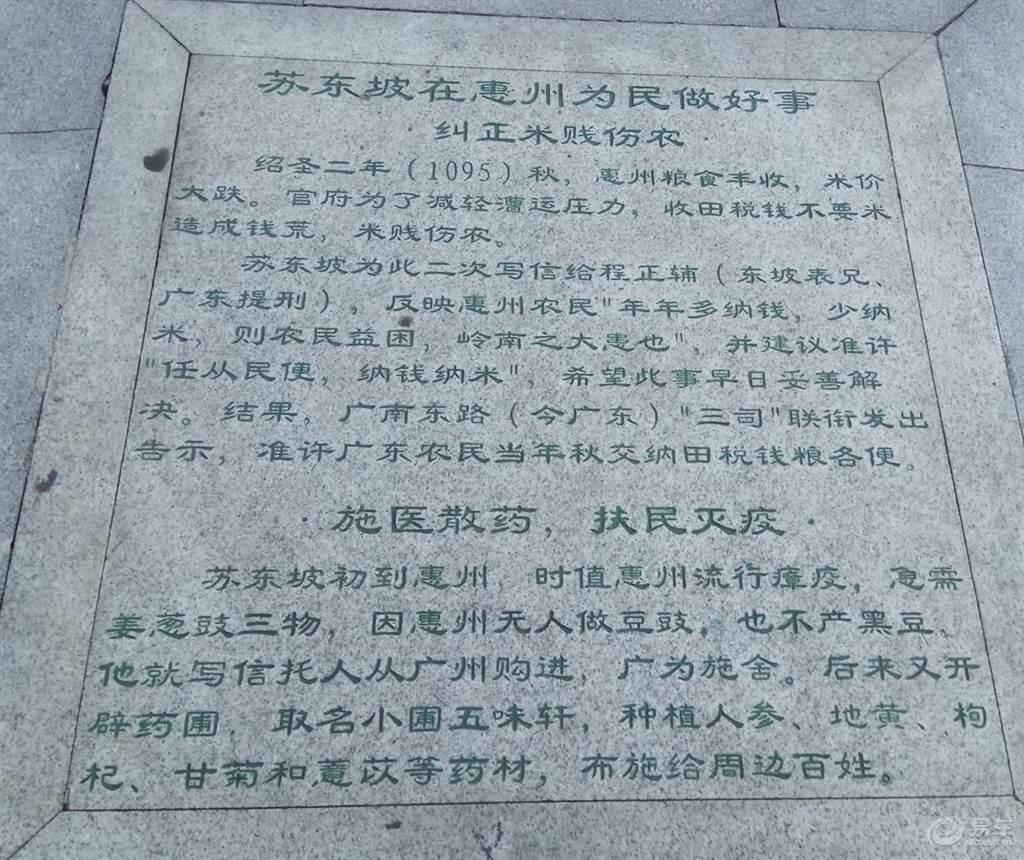 苏东坡在惠州为民做好事
·纠正米贱伤农·
绍圣二年(1095)秋，惠州粮食丰收，米价
大跌。官府为了减轻漕运压力，收田税钱不要米
造成钱荒，米贱伤农。
苏东坡为此二次写信给程正辅(东坡表兄、
广东提刑)，反映惠州农民"年年多纳钱，少纳
米，则农民益困，岭南之大患也"，并建议准许
"任从民便，纳钱纳米"，希望此事早日妥善解
决。结果，广南东路(今广东)"三司"联衔发出
告示，准许广东农民当年秋交纳田税钱粮各便。
·施医散药，扶民灭疫·
苏东坡初到惠州，时值惠州流行瘴疫，急需
姜葱豉三物，因惠州无人做豆豉，也不产黑豆、
他就写信托人从广州购进，广为施舍。后来又开
辟药圃，取名小圃五味轩，种植人参、地黄、枸
杞、甘菊和薏苡等药材，布施给周边百姓。
易车